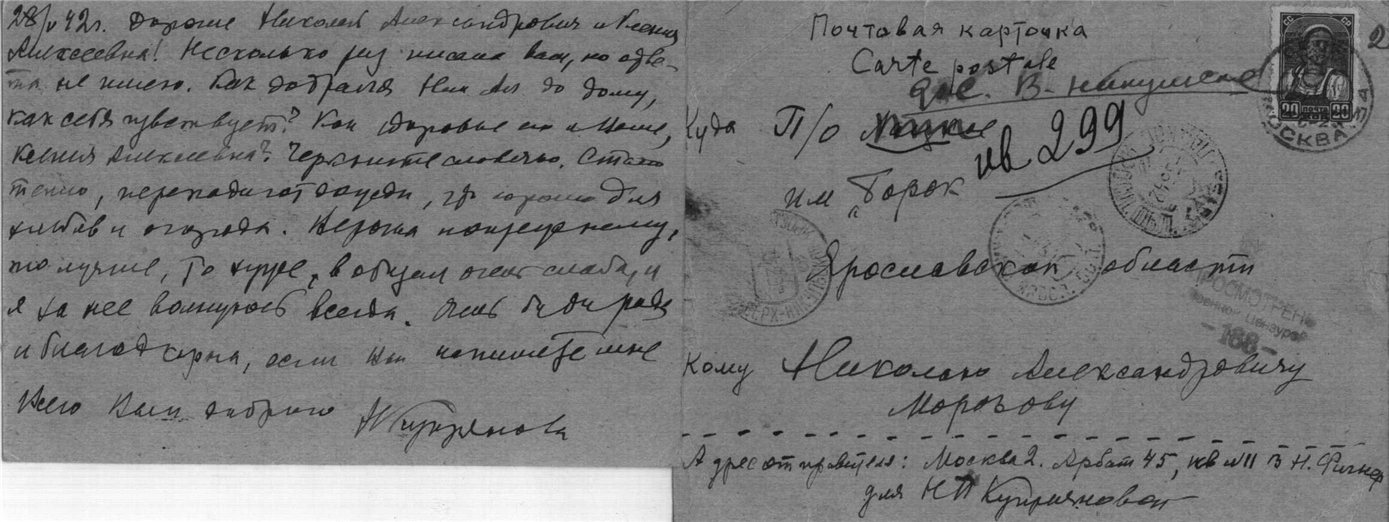 28/V 42 г. Дорогие Николай Александрович и Ксения
Алексеевна! Несколько раз писала вам, но отве-
та не имею. Как добрался Ник Ал до дому,
как себя чувствует? Как здоровье его и Ваше,
Ксения Алексеевна? Черкните словечко. Стало
тепло, перепадают дожди, хорошо для
хлебов и огорода. Верочка по прежнему,
то лучше, то хуже, в общем очень слаба, и
я за нее волнуюсь всегда. Очень буду рада
и благодарна, если Вы напишете мне
Всего Вам доброго Н Куприянова
Почтовая карточка
Carte postale
В-Никульское
Куда П/о
им "Борок
кв 299
Ярославской области
Кому Николаю Александровичу
Морозову
Адрес отправителя: Москва 2. Арбат 45, кв №11 В Н. Фигнер
для Н П Куприяновой
СССР
20 ПОЧТА 20
МОСКВА
ПРОСМОТРЕНО
Военной Цензурой
-188-
2